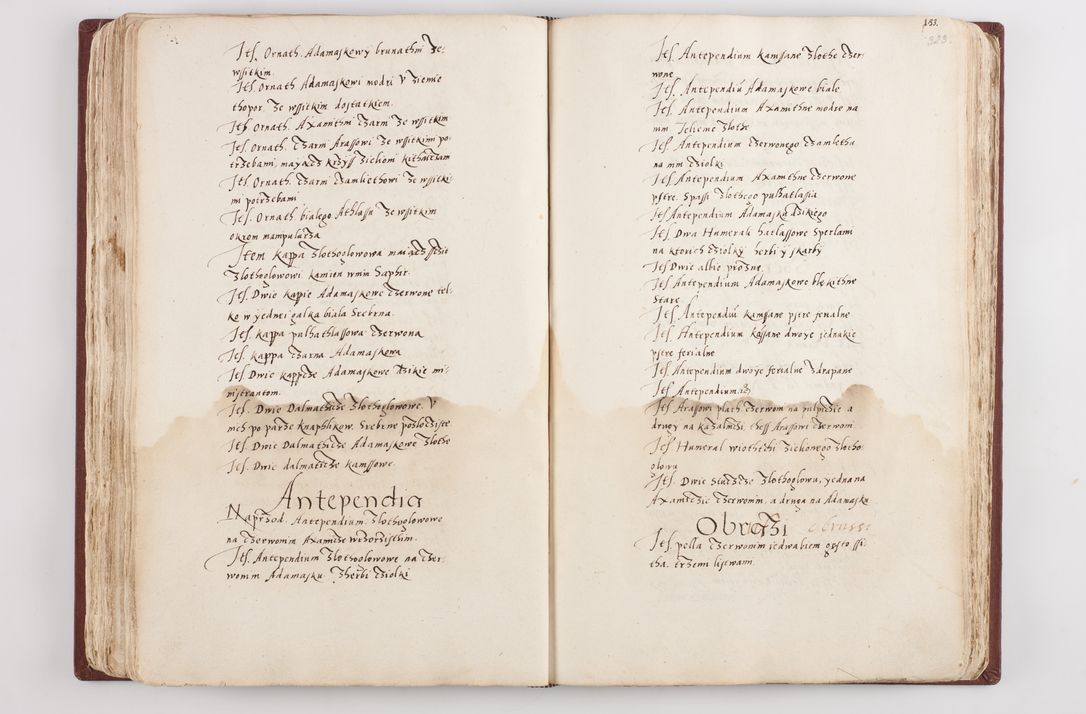 Jtę. Ornath. Adamaſkowy brunathni ze
wſſitkim.
Jtę. Ornath Adamaſkowi modri V ziemie
thopor. ze wſſitkim doſtatkiem.
Jtę Ornath. Axamithni czarni ze wſſitkim
Jtę. Ornath. czarni Araſſowi ze wſſitkim po⸗
trzebami, kithaiczam
Jtę. Ornath. czarni czamlethowi ze wſſitki⸗
mi potrzebami
Jtę. Ornath. bialego Athlaſſu ze wſſitkim
okrom manipularza
Jtem kappa zlothoglowowa
zlothoglowowi. kamien wnim Saphir.
Jtę. Dwie kapie Adamaſkowe czerwone tel⸗
ko w yednei galka biala Srebrna.
Jtę. kappa pulhathlaſſowa czerwona
Jtę. kappa czarna Adamaſkowa
Jtę Dwie kappicze Adamaſkowe dzikie mi⸗
niſtrantom.
Jtę. Dwie Dalmathicze zlothoglowowe. V
nich po parze knaphlikow. Srebrne pozlociſte
Jtę. Dwie Dalmathicze Adamaſkowe zlothe
Jtę. Dwie dalmaticze kamſſowe.
Antependia
Naprzod. Antependium. zlothoglowowe
na czerwonim Axamicie wzorziſthim.
Jtę. Antependium zlothoglowowe na czer⸗
wonim Adamaſku. zherbi cziolki
183.
323.
Jtę. Antependium kamſane zlothe czer⸗
wone
Jtę. Antependiū Adamaſkowe biale
Jtę. Antependium Axamithne modre na
nim Jelienie zlothe
Jtę. Antependium czerwonego czamlethu
na nim cziolki
Jtę. Antependium Axamithne czerwone
pſtre. Spaſſi zlothego pulhatlaſia
Jtę Antependium Adamaſku dzikiego
Jtę. Dwa Humerali hatlaſſowe Sperlami
na ktorich cziolky herbi y ſkarby
Jtę Dwie albie prozne.
Jtę Antependium Adamaſkowe blękithne
Stare
Jtę. Antependiū kamſane pſtre ferialne
Jtę. Antependium kaſſane dwoye iednakie
pſtre ferialne
Jtę Antependium dwoye ferialne zdrapane
Jtę Antependium
Jtę Araſowi plath czerwoni na pulpicie a
drugy na kazalnici. theſſ Araſſowi czerwoni.
Jtę Humeral wiothchi zielonego zlotho⸗
glowu
Jtę. Dwie Stulcze zlothoglowu, yedna na
Axamicie czerwonim, a druga na Adamaſku
Obruſzi obrussi
Jtę pella czerwonim iedwabiem gęſto ſſi⸗
tha. trzemi liſtwami